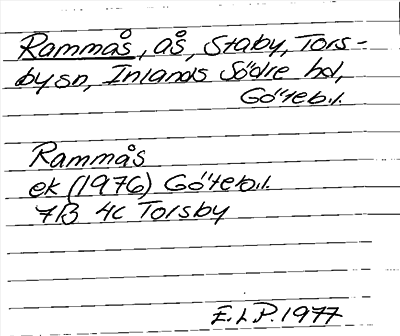 Rammås, ås, Staby, Tors-
by sn, Inlands Södre hd,
Göteb.l.
Rammås
ek (1976) Göteb.l.
7B 4c Torsby
E.L.P. 1977